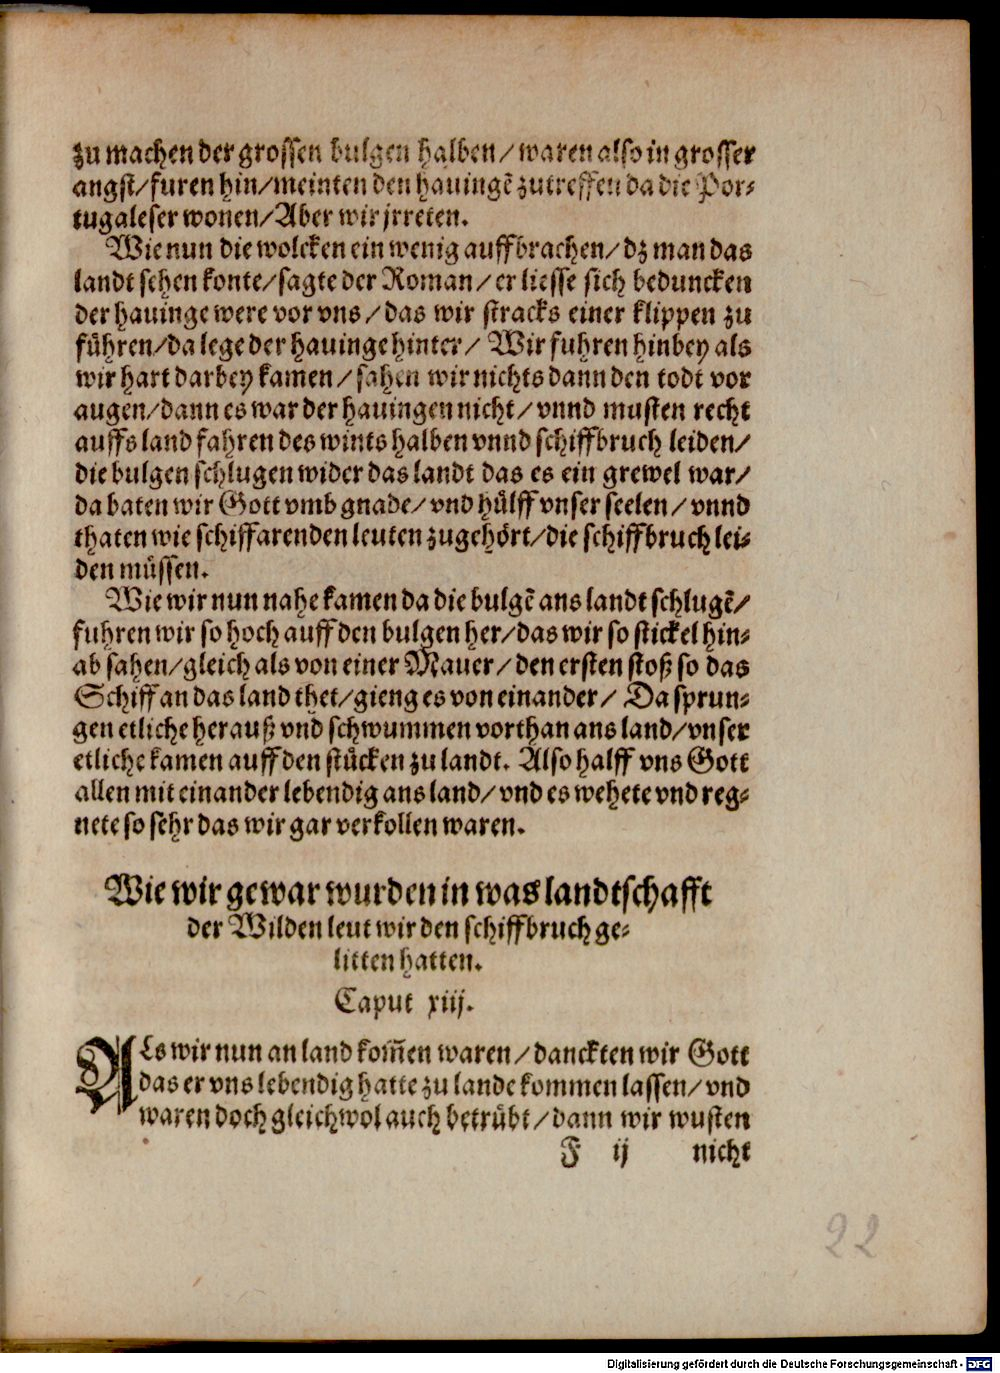 zu machen der grossen bulgen halben / waren also in grosser
angst / furen hin / meinten den hauingē zutreffen da die Por⸗
tugaleser wonen / Aber wir jrreten.
Wie nun die wolcken ein wenig auffbrachen / dz man das
landt sehen konte / sagte der Roman / er liesse sich beduncken
der hauinge were vor vns / das wir stracks einer klippen zu
führen / da lege der hauinge hinter / Wir fuhren hinbey als
wir hart darbey kamen / sahen wir nichts dann den todt vor
augen / dann es war der hauingen nicht / vnnd musten recht
auffs land fahren des wints halben vnnd schiffbruch leiden /
die bulgen schlugen wider das landt das es ein grewel war /
da baten wir Gott vmb gnade / vnd hülff vnser seelen / vnnd
thaten wie schiffarenden leuten zugehört / die schiffbruch lei⸗
den müssen.
Wie wir nun nahe kamen da die bulgē ans landt schlugē /
fuhren wir so hoch auff den bulgen her / das wir so stickel hin⸗
ab sahen / gleich als von einer Mauer / den ersten stoß so das
Schiff an das land thet / gieng es von einander / Da sprun⸗
gen etliche herauß vnd schwummen vorthan ans land / vnser
etliche kamen auff den stücken zu landt. Also halff vns Gott
allen mit einander lebendig ans land / vnd es wehete vnd reg⸗
nete so sehr das wir gar verkollen waren.
Wie wir gewar wurden in was landtschafft
der Wilden leut wir den schiffbruch ge⸗
litten hatten.
Caput xiij.
ALs wir nun an land kom̄en waren / danckten wir Gott
das er vns lebendig hatte zu lande kommen lassen / vnd
waren doch gleichwol auch betrübt / dann wir wusten
F ij nicht
22
Digitalisierung gefördert durch die Deutsche Forschungsgemeinschaft - DFG